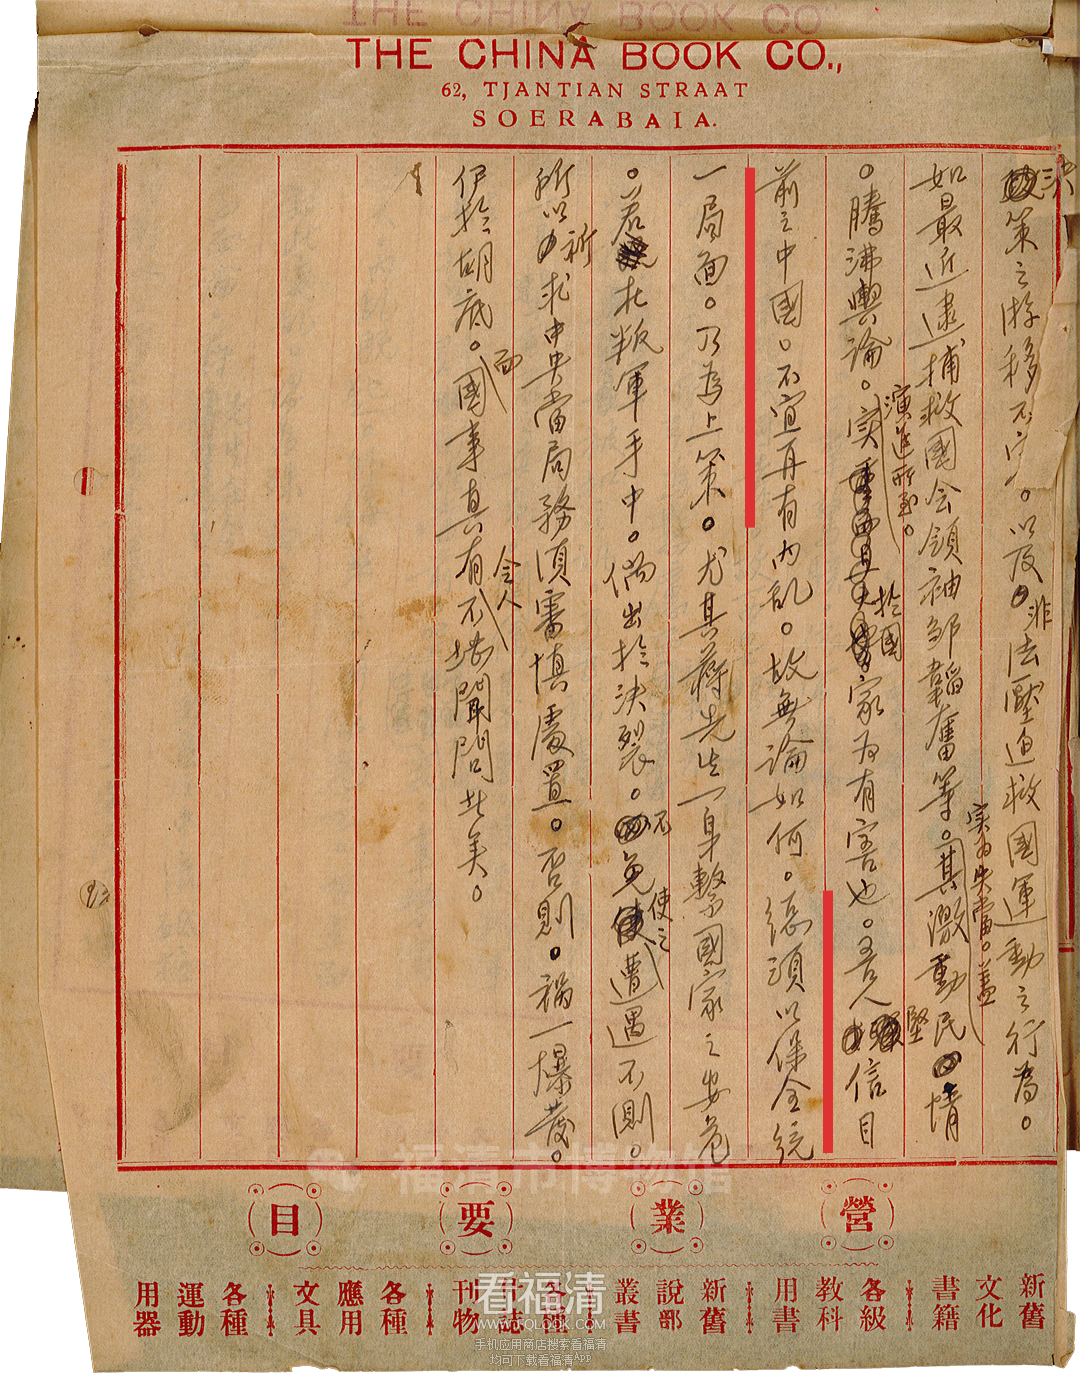 THE CHINA BOOK CO.
THE CHINA BOOK CO.,
62, TJANTIAN STRAAT
SOERABAIA.
決策之游移不定。以及非法壓迫救國運動之行為。
如最近逮捕救國会領袖鄒韜奮等。實為失當。蓋其激動民情
。騰沸輿論。演進所至。实於國家为有害也。吾人堅信目
前之中國。不宜再有内乱。故無論如何。總須以保全統
一局面。乃為上策。尤其蔣先生一身繫國家之安危
。若在叛軍手中。倘出於決裂。不免使之遭遇不測。
所以祈求中央當局務須審慎處置。否則。禍一爆發。
伊於胡底。而國事真有令人不堪聞問者矣。
營業要目
新舊文化書籍
各級教科用書
新舊說部叢書
各種雜誌刊物
各種應用文具
各種運動用器
福清市博物馆
看福清
WWW.TOLOOK.COM
手机应用商店搜索看福清
均可下载看福清APP